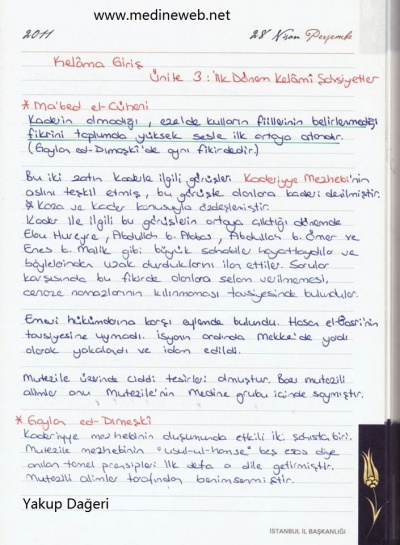 www.medineweb.net
2011
28 Nisan Perşembe
Kelâma Giriş
Ünite 3: İlk Dönem Kelâmi Şahsiyetler
* Ma'bed el-Cüheni
Kaderin olmadığı, ezelde kulların fiillerinin belirlenmediği
fikrini toplumda yüksek sesle ilk ortaya atandır.
(Gaylan ed-Dımeşkî'de aynı fikirdedir.)
Bu iki zatın kaderle ilgili görüşleri Kaderiyye Mezhebi'nin
aslını teşkil etmiş, bu görüşte olanlara kaderi denilmiştir.
* Kaza ve kader konusuyla özdeşleşmiştir.
Kader ile ilgili bu görüşlerin ortaya çıktığı dönemde
Ebu Hureyre, Abdullah b. Abbas, Abdullah b. Ömer ve
Enes b. Malik gibi büyük sahabiler hayattaydılar ve
böylelerinden uzak durduklarını ilan ettiler. Sorular
karşısında bu fikirde olanlara selam verilmemesi,
cenaze namazlarının kılınmaması tavsiyesinde bulundular.
Emevi hükümdarına karşı eylemde bulundu. Hasan el-Basri'nin
tavsiyesine uymadı. İsyanın ardında Mekke'de yaralı
olarak yakalandı ve idam edildi.
Mutezile üzerinde ciddi tesirleri olmuştur. Bazı mutezili
alimler onu Mutezile'nin Medine grubu içinde saymıştır.
* Gaylan ed-Dımeşkî
Kaderiyye mezhebinin oluşumunda etkili iki şahıstan biri.
Mutezile mezhebinin "usul-ul-hamse" beş esas diye
anılan temel prensipleri ilk defa o dile getirmiştir.
Mutezili alimler tarafından benimsenmiştir.
Yakup Dağeri
İSTANBUL İL BAŞKANLIĞI